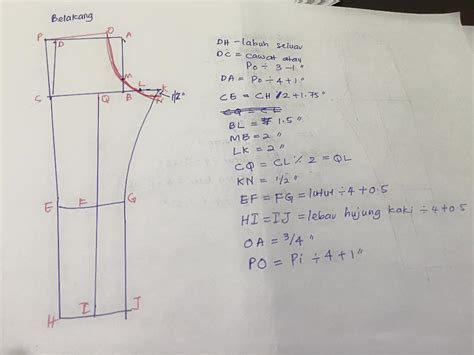 Belakang
O
P D A
M
L K
S Q B N 1/2"
E F G
H I J
DH - labuh seluar
DC = cawat atau
Po ÷ 3 - 1"
DA = Po ÷ 4 + 1"
CE = CH ÷ 2 + 1.75"
CQ = CE
BL = 1.5"
MB = 2"
LK = 2"
CQ = CL ÷ 2 = QL
KN = 1/2"
EF = FG = lutut ÷ 4 + 0.5
HI = IJ = lebar hujung kaki ÷ 4 + 0.5
OA = 3/4"
PO = Pi ÷ 4 + 1"